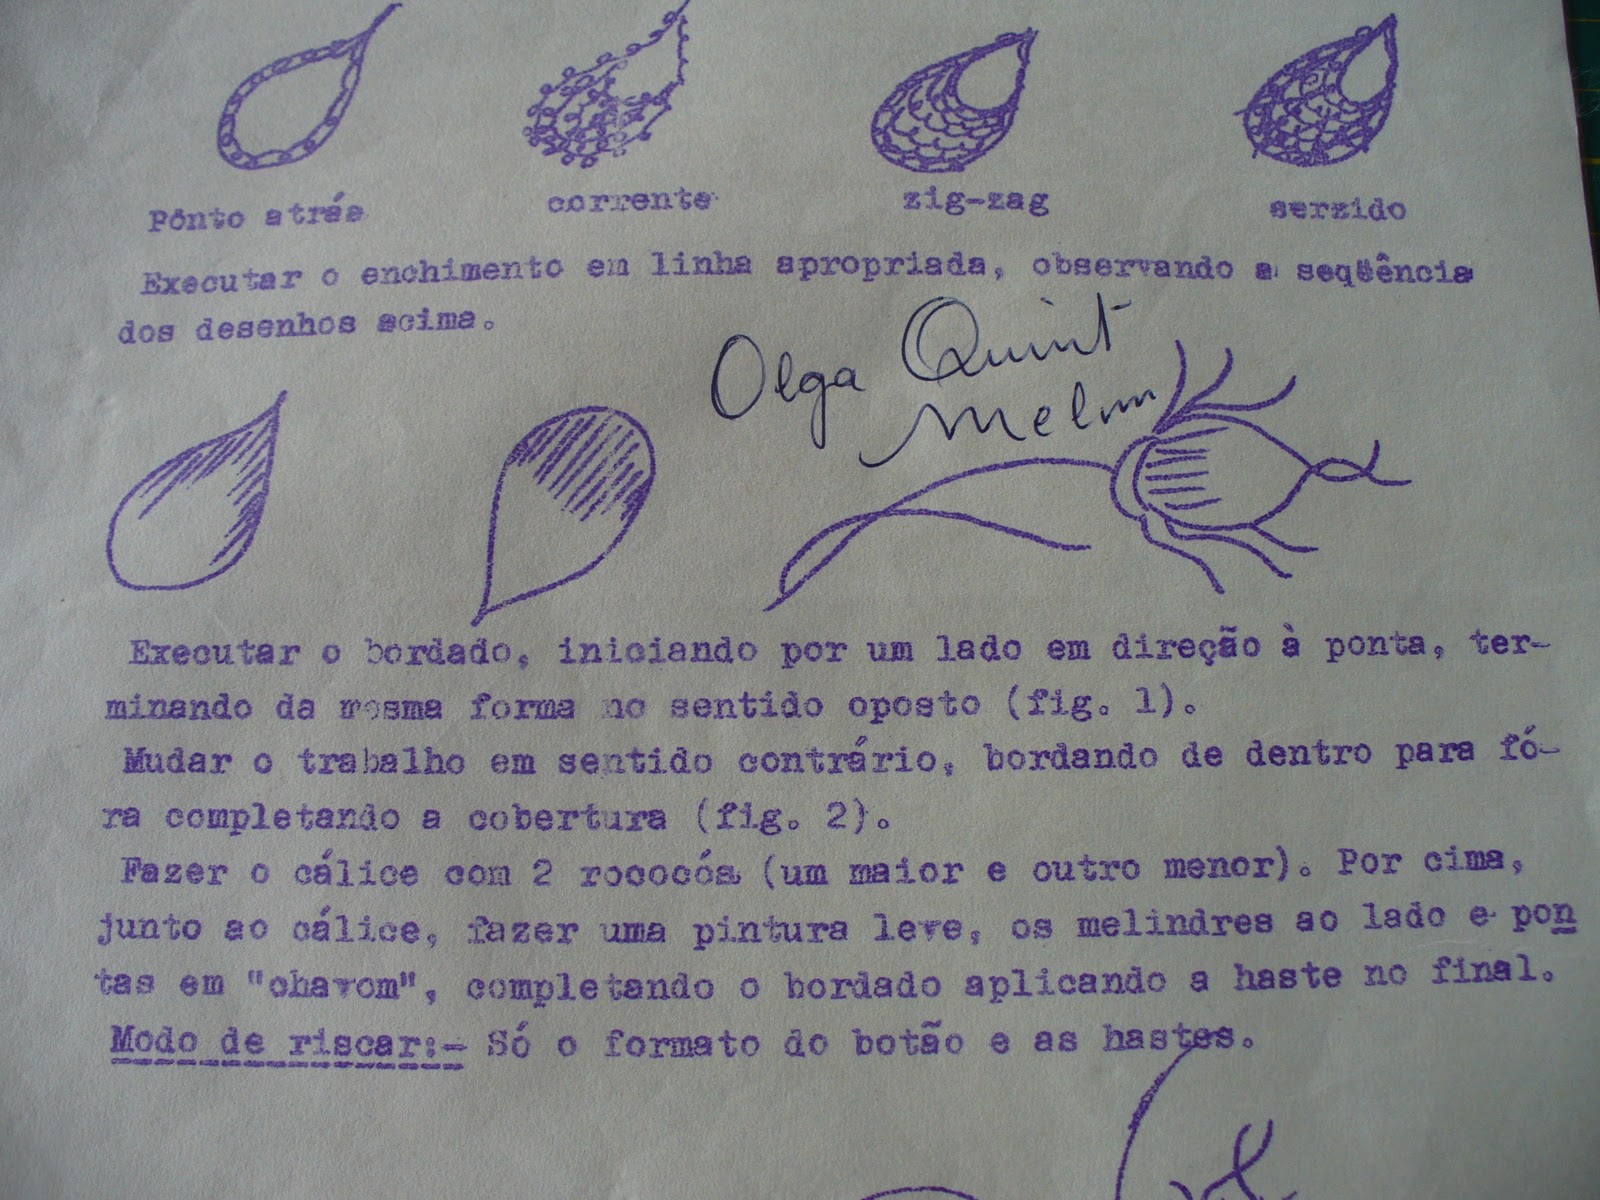 Pônto atrás corrente zig-zag serzido
Executar o enchimento em linha apropriada, observando a seqüência
dos desenhos acima.
Olga Quint
Executar o bordado, iniciando por um lado em direção à ponta, ter-
minando da mesma forma no sentido oposto (fig. 1).
Mudar o trabalho em sentido contrário, bordando de dentro para fó-
ra completando a cobertura (fig. 2).
Fazer o cálice com 2 rococós (um maior e outro menor). Por cima,
junto ao cálice, fazer uma pintura leve, os melindres ao lado e pon
tas em "chavom", completando o bordado aplicando a haste no final.
Modo de riscar:- Só o formato do botão e as hastes.